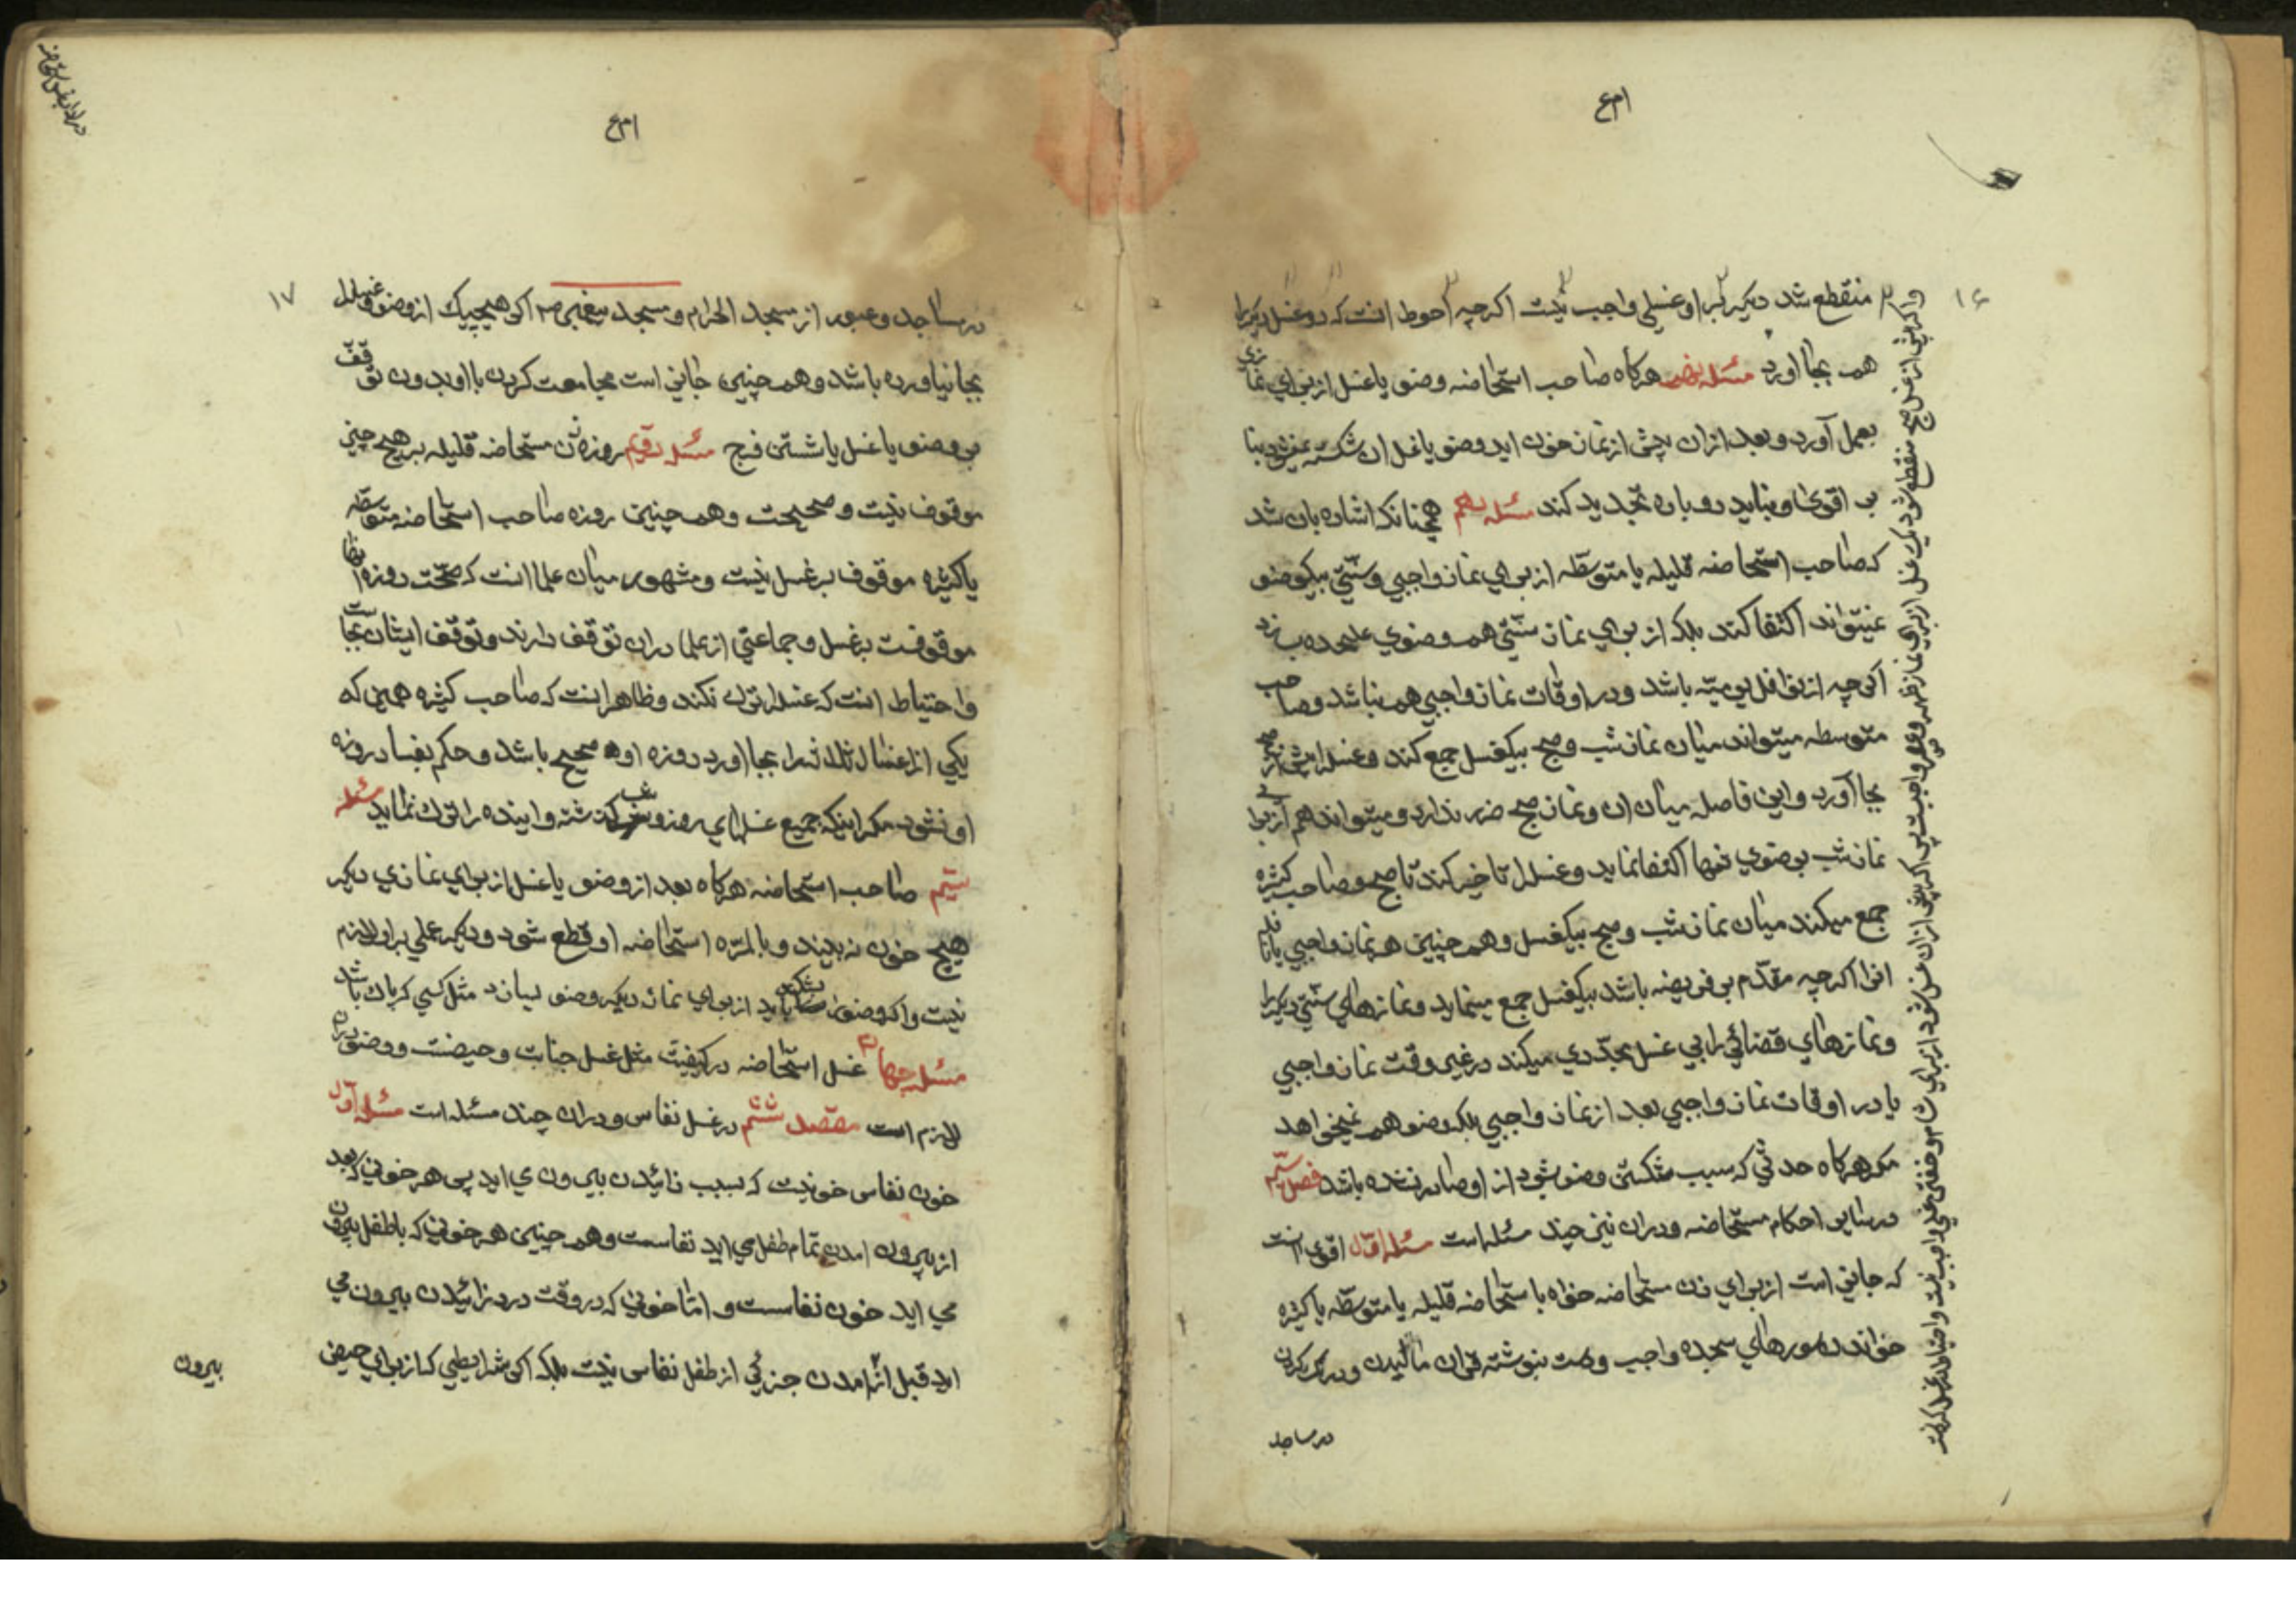 ۱۶
منقطع شد دیگر بر او غسلی واجب نیست اگرچه احوط انست که دو غسل دیگر را
هم بجا اورد مسئله نهم هرگاه صاحب استحاضه وضو یا غسل از برای نمازی
بعمل آورد و بعد از ان پیش از نماز خون اید وضو یا غسل ان شکسته نمیشود بنا
بر اقوی و نباید دوباره تجدید کند مسئله دهم همچنانکه اشاره بان شد
که صاحب استحاضه قلیله یا متوسّطه از برای نماز واجبی و سنّتی بیکوضو
نمیتواند اکتفا کند بلکه از برای نماز سنّتی هم وضوی علیحده بسازد
اگرچه از نوافل یومیّه باشد و در اوقات نماز واجبی هم نباشد و صاحب
متوسطه میتواند میان نماز شب و صبح بیکغسل جمع کند و غسل را پیش از صبح
بجا آورد و این فاصله میان ان و نماز صبح ضرر ندارد و میتواند هم از برای
نماز شب بوضوی تنها اکتفا نماید و غسل را تاخیر کند تا صبح و صاحب کثیره
جمع میکند میان نماز شب و صبح بیکغسل و همچنین هر نماز واجبی با نافله
انرا اگرچه مقدّم بر فریضه باشد بیکغسل جمع مینماید و نمازهای سنّتی دیگر را
و نمازهای قضائی را بی غسل مجدّدی میکند در غیر وقت نماز واجبی
یا در اوقات نماز واجبی بعد از نماز واجبی بلکه وضو هم نمیخواهد
مگر هرگاه حدثی که سبب شکستن وضو شود از او صادر شده باشد فصل سیّم
در سایر احکام مستحاضه و در ان نیز چند مسئله است مسئله اوّل اقوی انست
که جایز است از برای زن مستحاضه خواه باستحاضه قلیله یا متوسّطه یا کثیره
خواندن سورهای سجده واجب و دست بنوشته قران مالیدن و درنگ کردن
در مساجد
واگر پیش از غسل صبح منقطع شود یک غسل از برای نماز ظهر و عصر واجبست پس اگر پیش از ان غسل شود از برای شام و خفتن غسلی واجب نیست و احتیاط در غسل کردنست
۱۷
در مساجد و عبور از مسجد الحرام و مسجد پیغمبر ص اگر هیچیک از وضو و غسل را
بجا نیاورده باشد و همچنین جایز است مجامعت کردن با او بدون توقّف
بر وضو یا غسل یا شستن فرج مسئله دویّم روزه زن مستحاضه قلیله بر هیچ چیز
موقوف نیست و صحیحست و همچنین روزه صاحب استحاضه متوسّطه
یا کثیره موقوف بر غسل نیست و مشهور میان علما انست که صحّت روزه انها
موقوفست بر غسل و جماعتی از علما در ان توقّف دارند و توقّف ایشان بجاست
و احتیاط انست که غسل را ترک نکند و ظاهر انست که صاحب کثیره همین که
یکی از اغسال ثلاثه را بجا اورد روزه او صحیح باشد و حکم بفساد روزه
او نشود مگر اینکه جمیع غسلهای روز و شب گذشته و اینده را ترک نماید مسئله
سیّم صاحب استحاضه هرگاه بعد از وضو یا غسل از برای نمازی دیگر
هیچ خون نه بیند و بالمرّه استحاضه او قطع شود دیگر عملی بر او لازم
نیست و اگر وضو بشکند باید از برای نماز دیگر وضو بسازد مثل کسی که پاک باشد
مسئله چهارم غسل استحاضه در کیفیّت مثل غسل جنابت و حیضست و وضو در ان
لازم است مقصد ششم در غسل نفاس و در ان چند مسئله است مسئله اوّل
خون نفاس خونیست که بسبب زائیدن بیرون می اید پس هر خونی که بعد
از بیرون امدن تمام طفل می اید نفاسست و همچنین هر خونی که با طفل بیرون
می اید خون نفاسست و امّا خونی که در وقت درد زائیدن بیرون می
اید قبل از امدن جزئی از طفل نفاس نیست بلکه اگر شرایطی که از برای حیض
بیرون